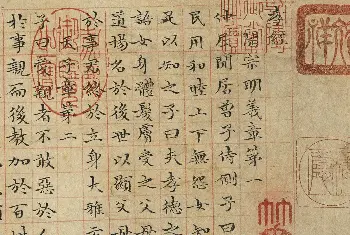 孝經
開宗明義章第一
仲尼閒居曾子侍側子曰
民用和睦上下無怨女知
足以知之子曰夫孝德之
語女身體髮膚受之父
道揚名於後世以顯父
於事君終於立身大雅
天子章第二
子曰愛親者不敢惡於
於事親而後教加於百